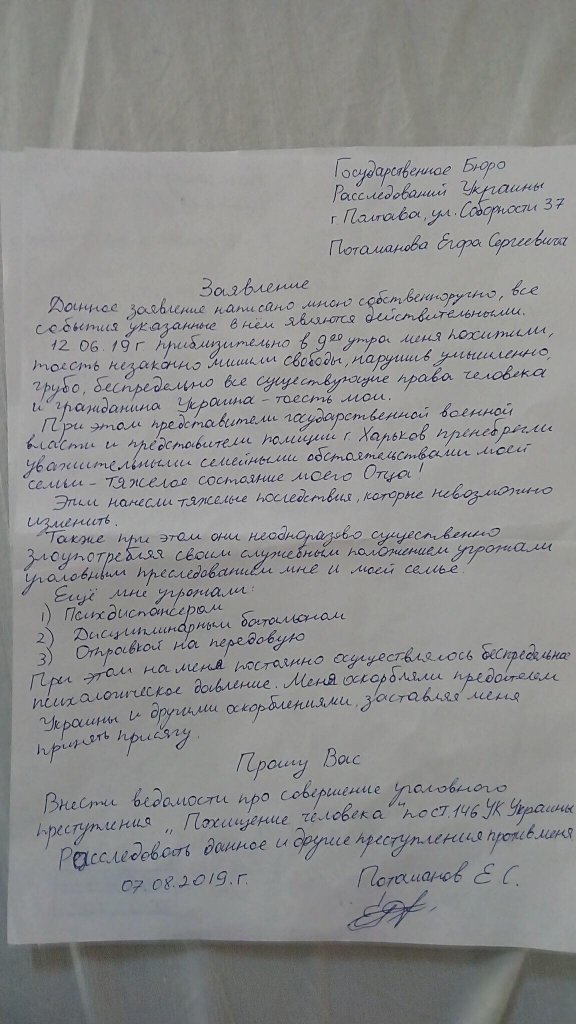 Государственное Бюро
Расследований Украины
г. Полтава, ул. Соборности 37
Потаманова Егора Сергеевича
Заявление
Данное заявление написано мною собственноручно, все
события указанные в нём являются действительными.
12.06.19 г приблизительно в 9⁰⁰ утра меня похитили,
тоесть незаконно лишили свободы, нарушив умышленно,
грубо, беспредельно все существующие права человека
и гражданина Украина - тоесть мои.
При этом представители государственной военной
власти и представители полиции г. Харьков пренебрегли
уважительными семейными обстоятельствами моей
семьи - тяжелое состояние моего Отца!
Этим нанесли тяжелые последствия, которые невозможно
изменить.
Также при этом они неодноразово существенно
злоупотребляя своим служебным положением угрожали
уголовным преследованием мне и моей семье.
Ещё мне угрожали:
1) Психдиспансером
2) Дисциплинарным батальоном
3) Отправкой на передовую
При этом на меня постоянно осуществлялось беспредельное
психологическое давление. Меня оскорбляли предателем
Украины и другими оскорблениями, заставляя меня
принять присягу.
Прошу Вас
Внести ведомости про совершение уголовного
преступления „Похищение человека" по ст. 146 УК Украины
Расследовать данное и другие преступления против меня
07.08.2019.г. Потаманов Е.С.